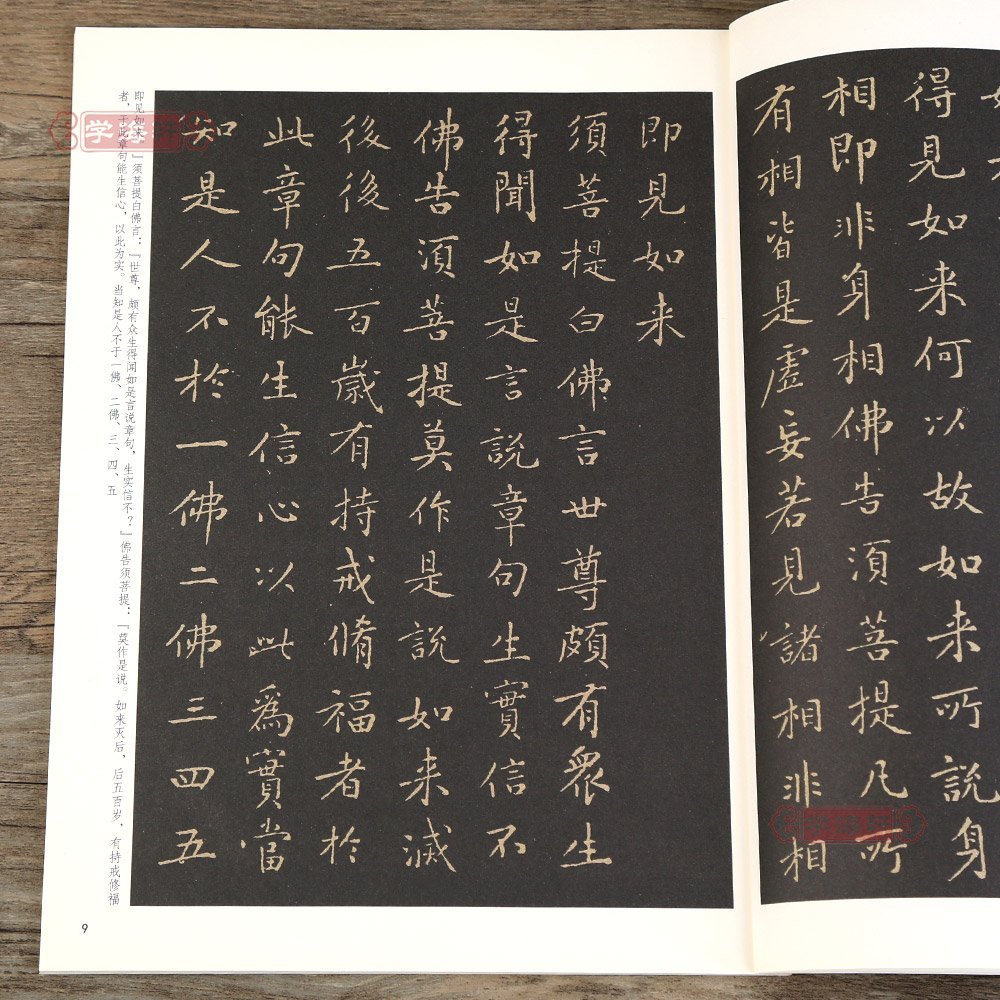 得見如来何以故如来所説身
相即非身相佛告須菩提凡所
有相皆是虚妄若見諸相非相
即見如来
須菩提白佛言世尊頗有衆生
得聞如是言説章句生實信不
佛告須菩提莫作是説如来滅
後後五百歲有持戒脩福者於
此章句能生信心以此爲實當
知是人不於一佛二佛三四五
即见如来。』须菩提白佛言：『世尊，颇有众生得闻如是言说章句，生实信不？』佛告须菩提：『莫作是说。如来灭后，后五百岁，有持戒修福
者，于此章句能生信心，以此为实。当知是人不于一佛、二佛、三、四、五
9